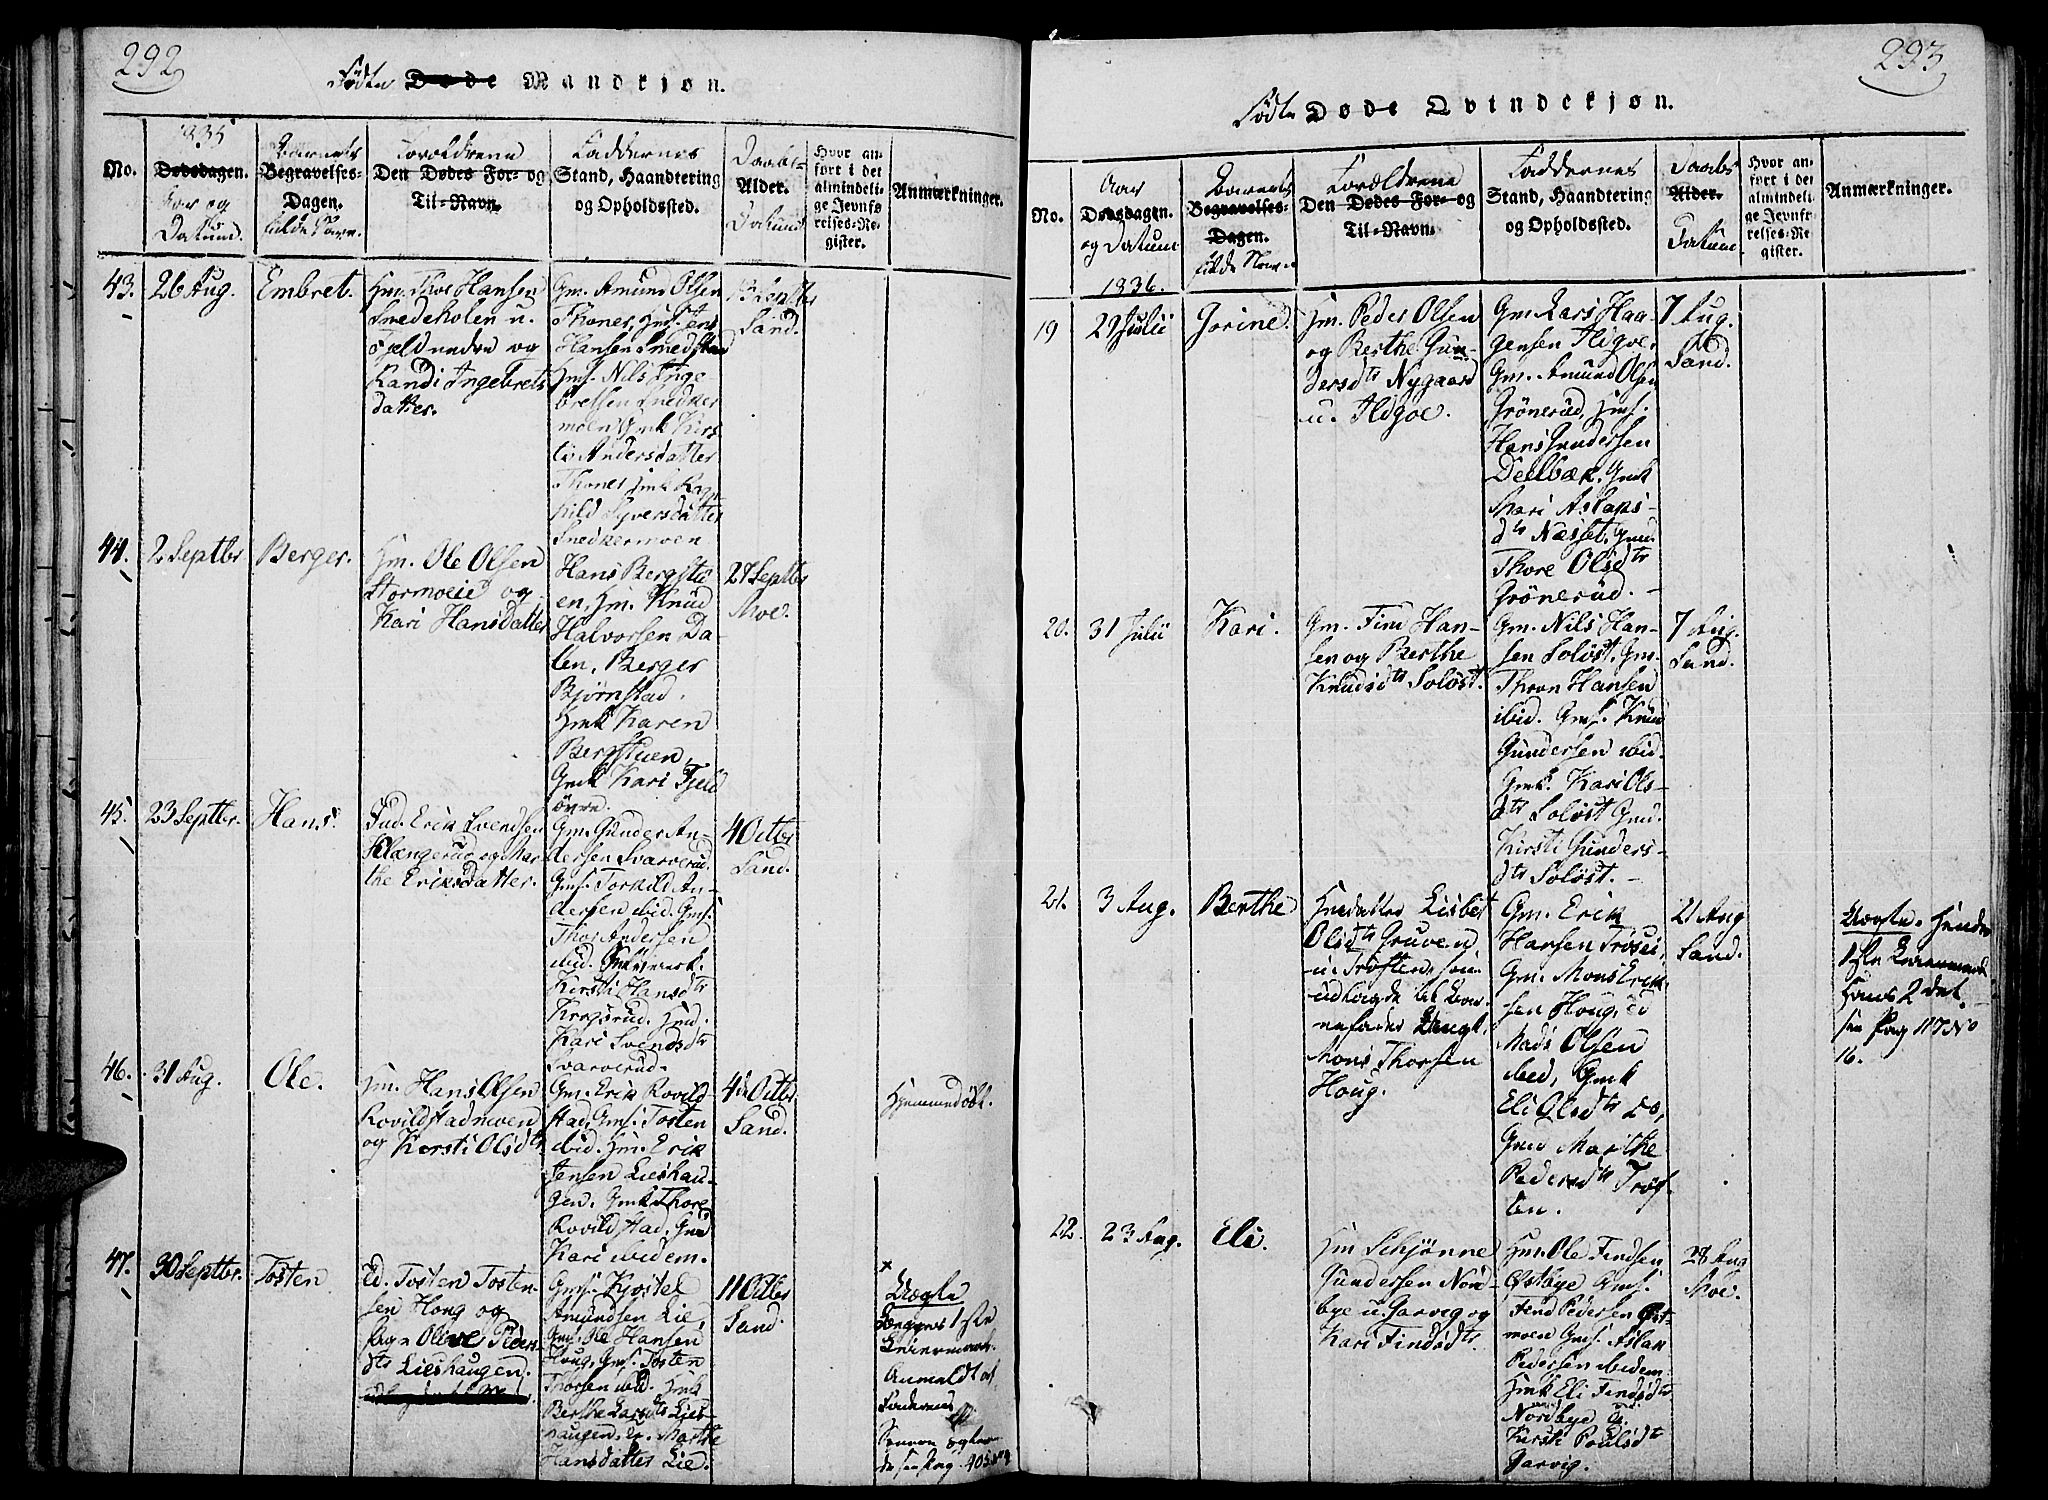 292
Fødte Døde Mandkjøn.
1835
No.
Dødsdagen.
Aar og
Datum.
Barnets
Begravelses-
Dagen.
fulde Navn.
Forældrene
Den Dødes For- og
Til-Navn.
Faddernes
Stand, Haandtering
og Opholdssted.
Daabs-
Alder.
Datum
Hvor an-
ført i det
almindeli-
ge Jevnfø
relses-Re-
gister.
Anmærkninger.
43.
26 Aug.
Embret.
Hm. Thor Hansen
Smedeholen u.
og
Randi Ingebrets
datter.
Gm. Amund Olsen
Thoner, Hmf. Jens
Hansen Smedstad
Hmf. Nils Inge
bretsen Snedker
moen Gmk Kirs
ti Andersdatter
Thoner Hmk Ragn
hild Syversdatter
Snedkermoen
Septbr
Sand.
44.
2 Septbr
Berger.
Hm. Ole Olsen
Stormoeie og
Kari Hansdatter
Hans Bergstu
en, Hm. Knud
Halvorsen Da-
len, Berger
Bjørnstad.
Hmk Karen
Bergstuen,
Gmk Kari Fjeld
øvre.
27 Septbr
Moe.
45.
23 Septbr.
Hans.
Ind. Erik Svendsen
Klængerud og Mar-
the Eriksdatter.
Gm. Gunder An-
dersen Svarverud
Gmf. Torkild An-
dersen ibid. Gmf.
Thor Andersen
ibid.
Kirsti Hansdtr
Krogsrud. Hmd.
Kari Svendsdtr
Svarverud.
4 Octbr
Sand.
46.
31 Aug.
Ole.
Hm. Hans Olsen
Rovildstadmoen
og Kersti Olsdtr
Gm. Erik Rovild
stad, Gmf. Tosten
ibid. Hm. Erik
Jensen Lieshau-
gen. Gmk Thore
Rovildstad, Gmd
Kari ibidem.
4de Octbr.
Sand.
Hjemmedøbt.
47.
30 Septbr.
Tosten
Ud. Tosten Tosten-
sen Houg og
Olive Peders-
dtr Lieshaugen.
Gmf. Kjøstel
Amundsen Lie,
Gmf. Ole Hansen
Houg, Gmf. Tosten
Thorsen ibid. Hmk
Berthe Larsdtr Lies-
haugen. Marthe
Hansdatter Lie.
11 Octbr
Sand.
Uægte
Begges 1ste
Leiermaal.
Anmeldt af
Faderens
405
293
Fødte Døde Qvindekjøn.
No.
Aar
Dødsdagen.
og Datum
1836.
Barnets
Begravelses-
Dagen.
fulde Navn
Forældrene
Den Dødes For- og
Til-Navn.
Faddernes
Stand, Haandtering
og Opholdssted.
Daabs
Alder.
Datum
Hvor an-
ført i det
almindeli-
ge Jevnfø-
relses-Re
gister.
Anmærkninger.
19
29 Julii
Jorine.
Hm. Peder Olsen
og Berthe Gun-
dersdtr Nygaard
u. Ildgoe.
Gm. Lars Haa-
gensen Ildgoe,
Gm. Amund Olsen
Grønerud, Hmf.
Hans Gundersen
Deelbæk. Gmk
Mari Aslaks-
dtr Næsset. Gmd.
Thore Olsdtr
Grønerud.
7 Aug.
Sand.
20.
31 Julii
Kari.
Gm. Find Han-
sen og Berthe
Knudsdtr Soløst.
Gm. Nils Han-
sen Soløst. Gm.
Thron Hansen
ibid. Gmf. Knud
Gundersen ibid.
Gmk. Kari Ols-
dtr Soløst Gmd.
Kirsti Gunders-
dtr Soløst.
7 Aug.
Sand.
21.
3 Aug.
Berthe
Huusdatter Lisbet
Olsdtr Gruven
u. Trøften, som
udlagde til Bar-
nefader Ungk.
Mons Thorsen
Houg.
Gm. Erik
Hansen
Gm. Mons Erik-
sen Houg,
Mads Olsen
ibid, Gmk
Eli Olsdtr
Gmd Marthe
Pedersdtr Trøf-
ten.
21 Aug
Sand.
Uægte. Hendes
1ste Leiermaal
Hans 2det.
see Pag 117 No
16.
22.
23 Aug.
Eli.
Hm Schjønne
Gundersen Nord-
bye u. Garvig og
Kari Findsdtr.
Hm. Ole Findsen
Østbye Gmf.
Find Pedersen Øst-
moen Gmf. Aslak
Pedersen ibidem.
Hmk Eli Findsdtr
Nordbye
Kirsti Poulsdtr
Garvig.
28 Aug
Moe.